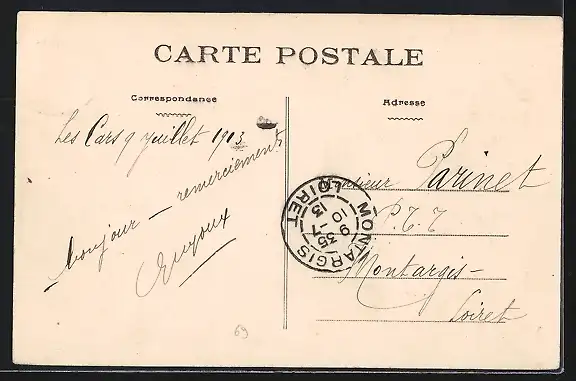 CARTE POSTALE
Correspondance
Adresse
Les Cars 9 juillet 1913
bonjour – remerciements
Monsieur Parinet
P.T.T
Montargis –
Loiret
MONTARGIS
9 35
10 - 7
13
LOIRET
69